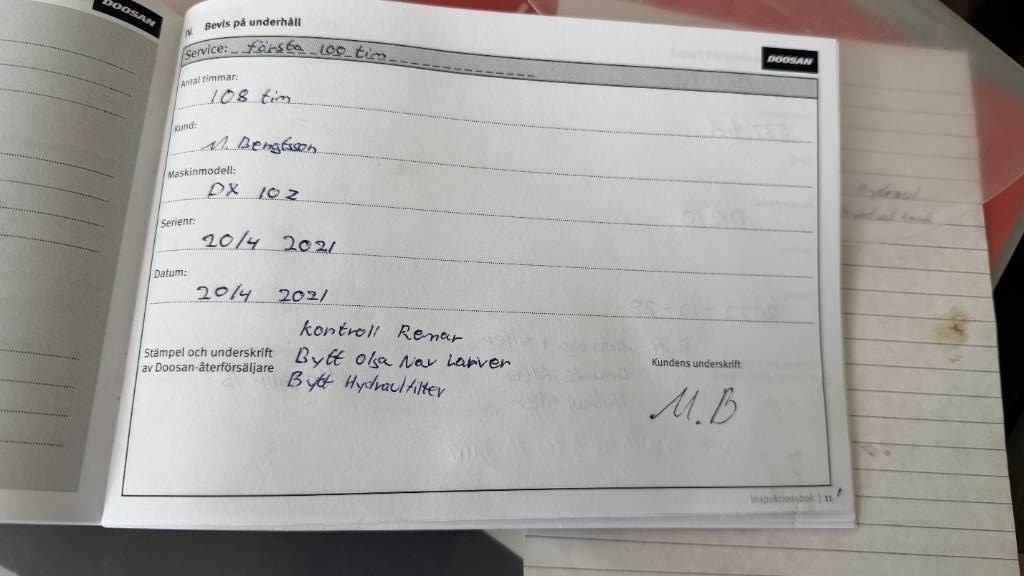 DOOSAN
IV. Bevis på underhåll
DOOSAN
Service: första 100 tim
Antal timmar:
108 tim
Kund:
M. Bengtsson
Maskinmodell:
DX 10 z
Serienr:
20/4 2021
Datum:
20/4 2021
Kontroll Remar
Bytt Olja Nav Lariver
Bytt Hydraulfilter
Stämpel och underskrift
av Doosan-återförsäljare
Kundens underskrift
M.B
Inspektionsbok | 11